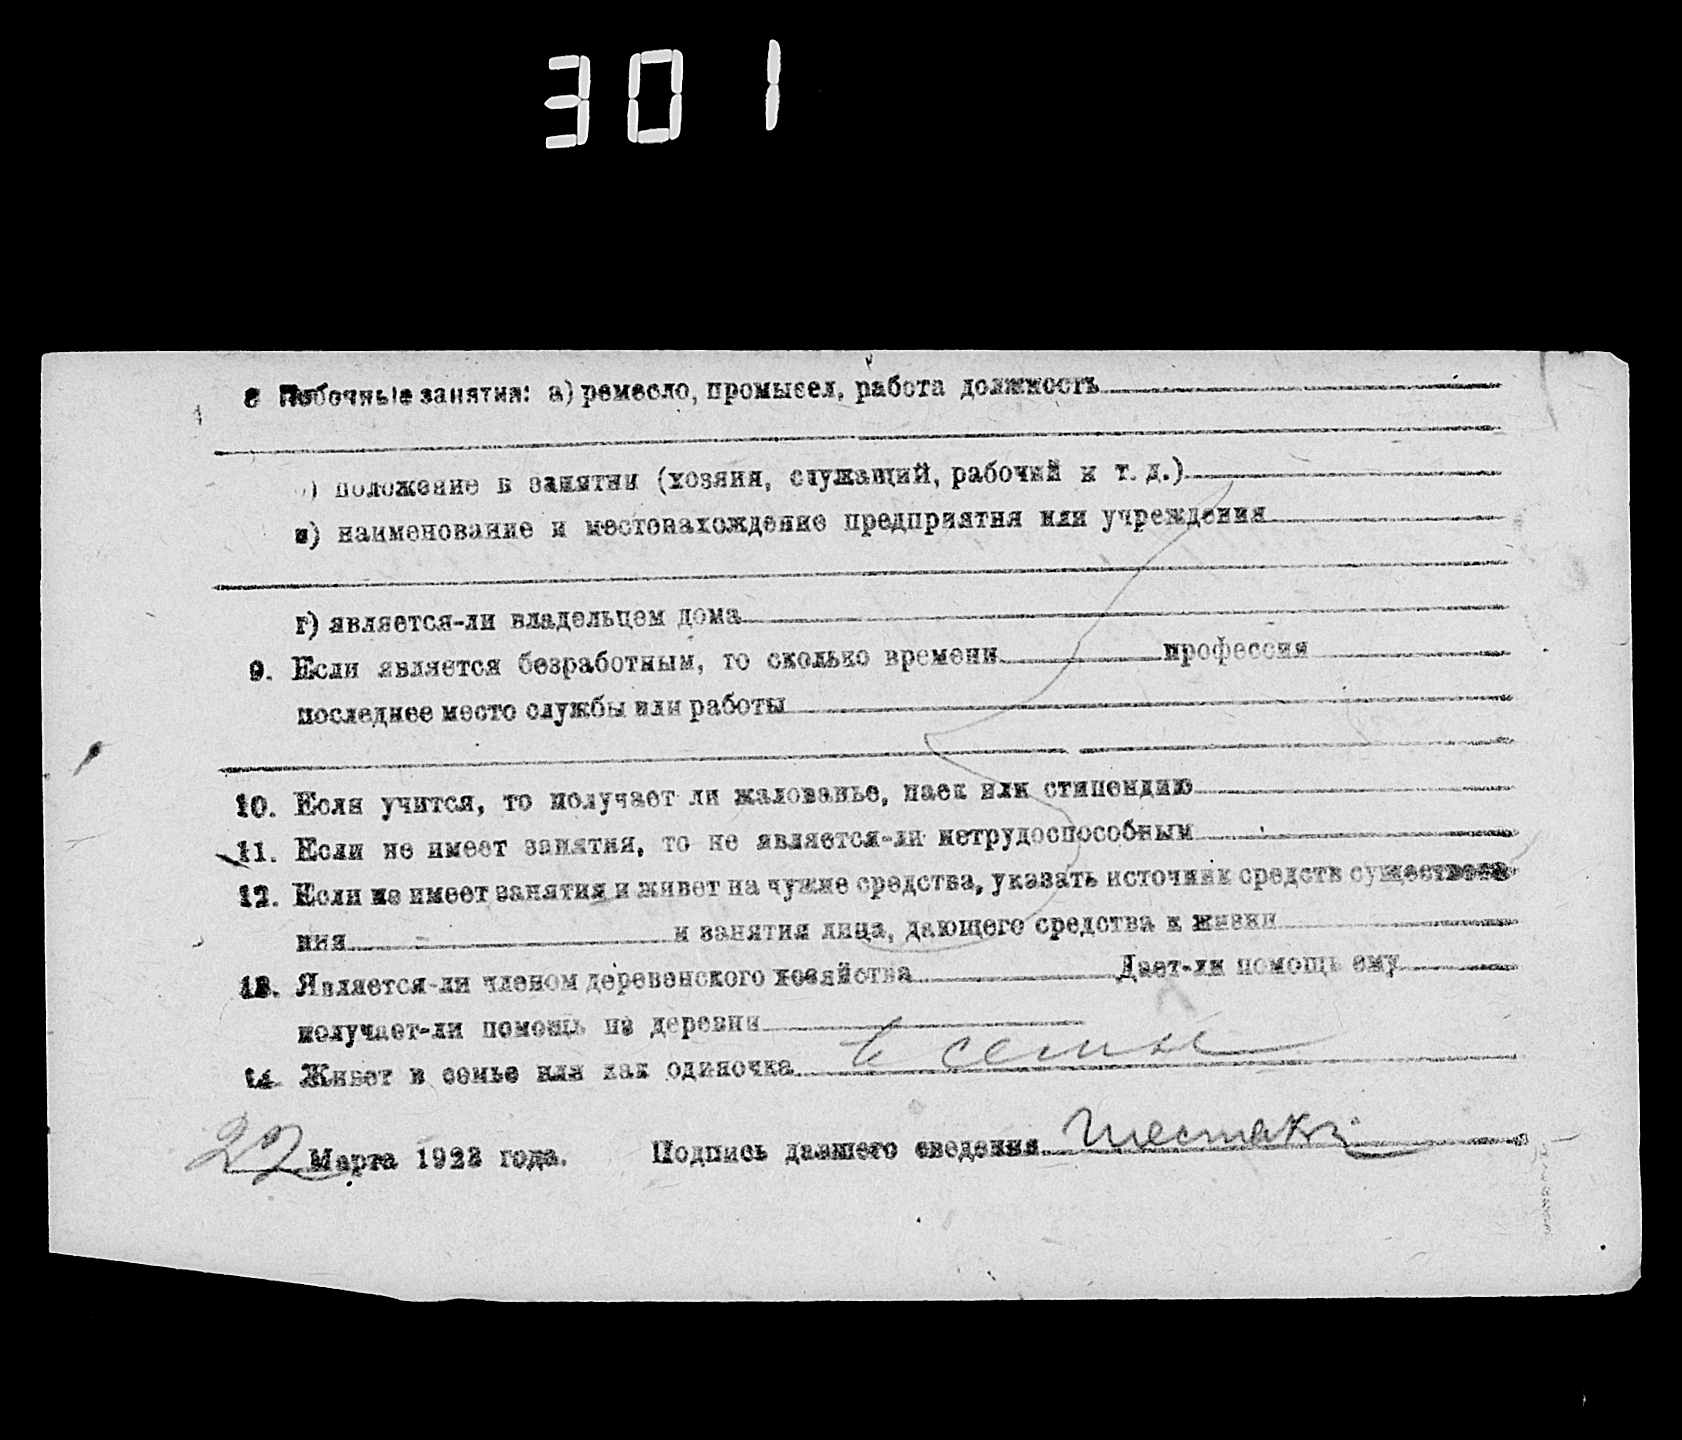 301
8 Побочные занятия: а) ремесло, промысел, работа должность
б) положение в занятии (хозяин, служащий, рабочий и т. д.)
в) наименование и местонахождение предприятия или учреждения
г) является-ли владельцем дома
9. Если является безработным, то сколько времени профессия
последнее место службы или работы
10. Если учится, то получает ли жалованье, паек или стипендию
11. Если не имеет занятия, то не является-ли нетрудоспособным
12. Если не имеет занятия и живет на чужие средства, указать источник средств существова
ния и занятия лица, дающего средства к жизни
13. Является-ли членом деревенского хозяйства Дает-ли помощь ему
получает-ли помощь из деревни
14 Живет в семье или как одиночка в семье
22 Марта 1923 года. Подпись давшего сведения